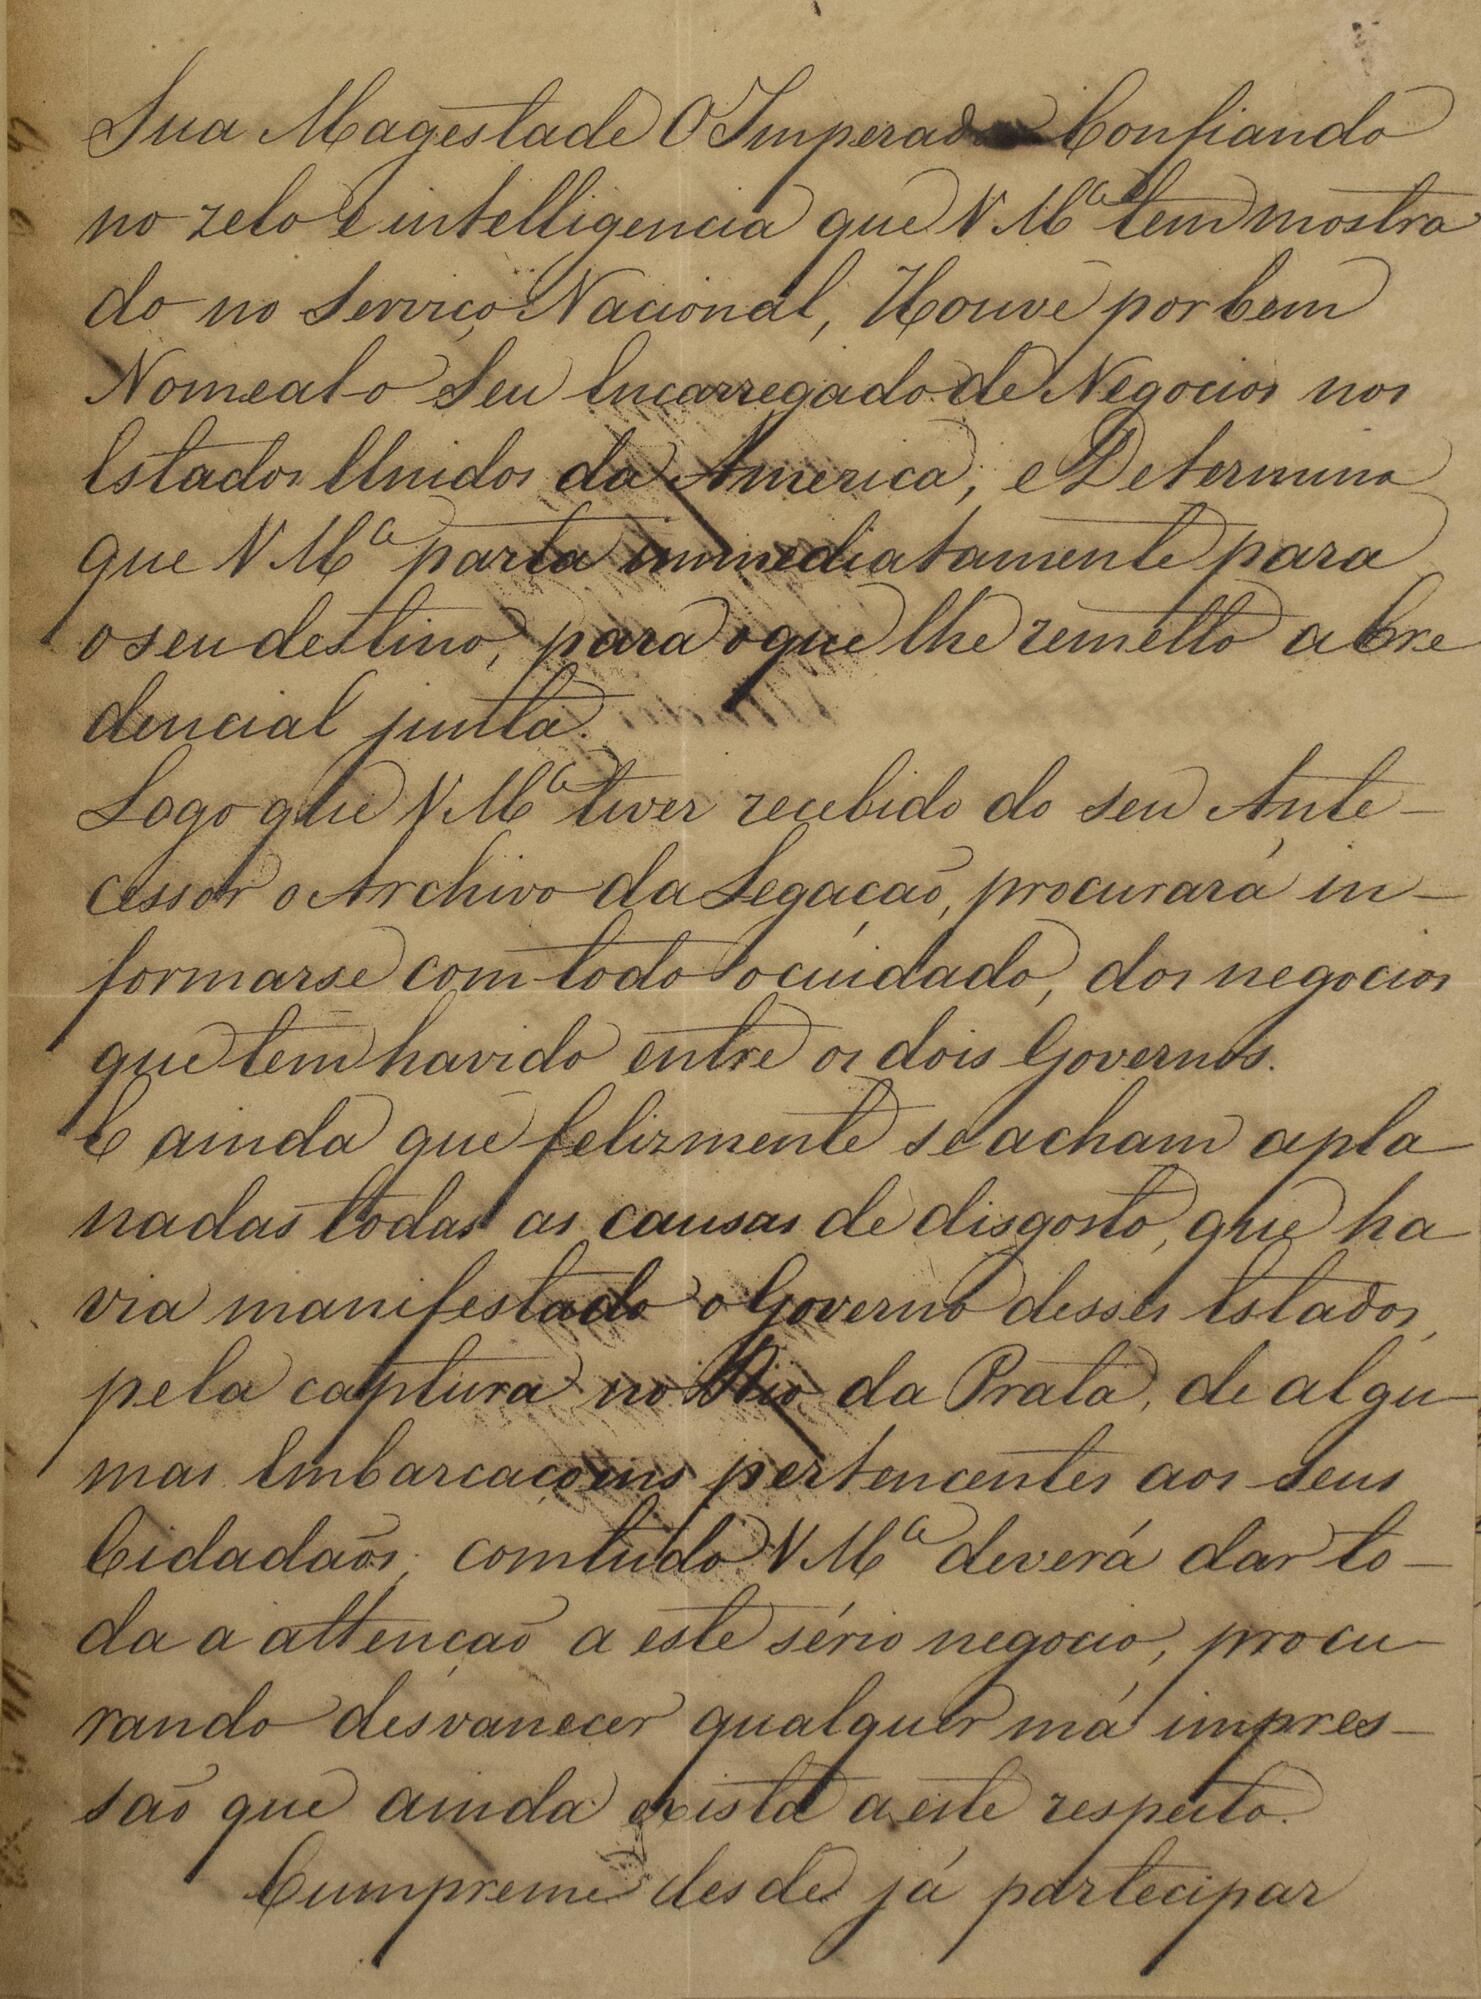 Sua Magestade O Imperador Confiando
no zelo e intelligencia que V Mce tem mostra
do no Serviço Nacional, Houve por bem
Nomealo Seu Encarregado de Negocios nos
Estados Unidos da America, e Determina
que V Mce parta immediatamente para
o seu destino, para o que lhe remetto a Cre
dencial junta.
Logo que V Mce tiver recebido do seu Ante-
cessor o Archivo da Legação, procurará in-
formarse com todo o cuidado, dos negocios
que tem havido entre os dois Governos.
E ainda que felizmente se acham apla
nadas todas as causas de disgosto, que ha
via manifestado o Governo desses Estados,
pela captura no Rio da Prata, de algu-
mas Embarcaçoens pertencentes aos seus
Cidadãos, comtudo V Mce deverá dar to-
da a attenção a este sério negocio, procu-
rando desvanecer qualquer má impres-
são que ainda exista a este respeito.
Cumpreme desde já partecipar